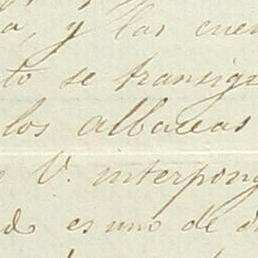 y las cuen
to se transigi
los albaceas
V. interpong
es uno de